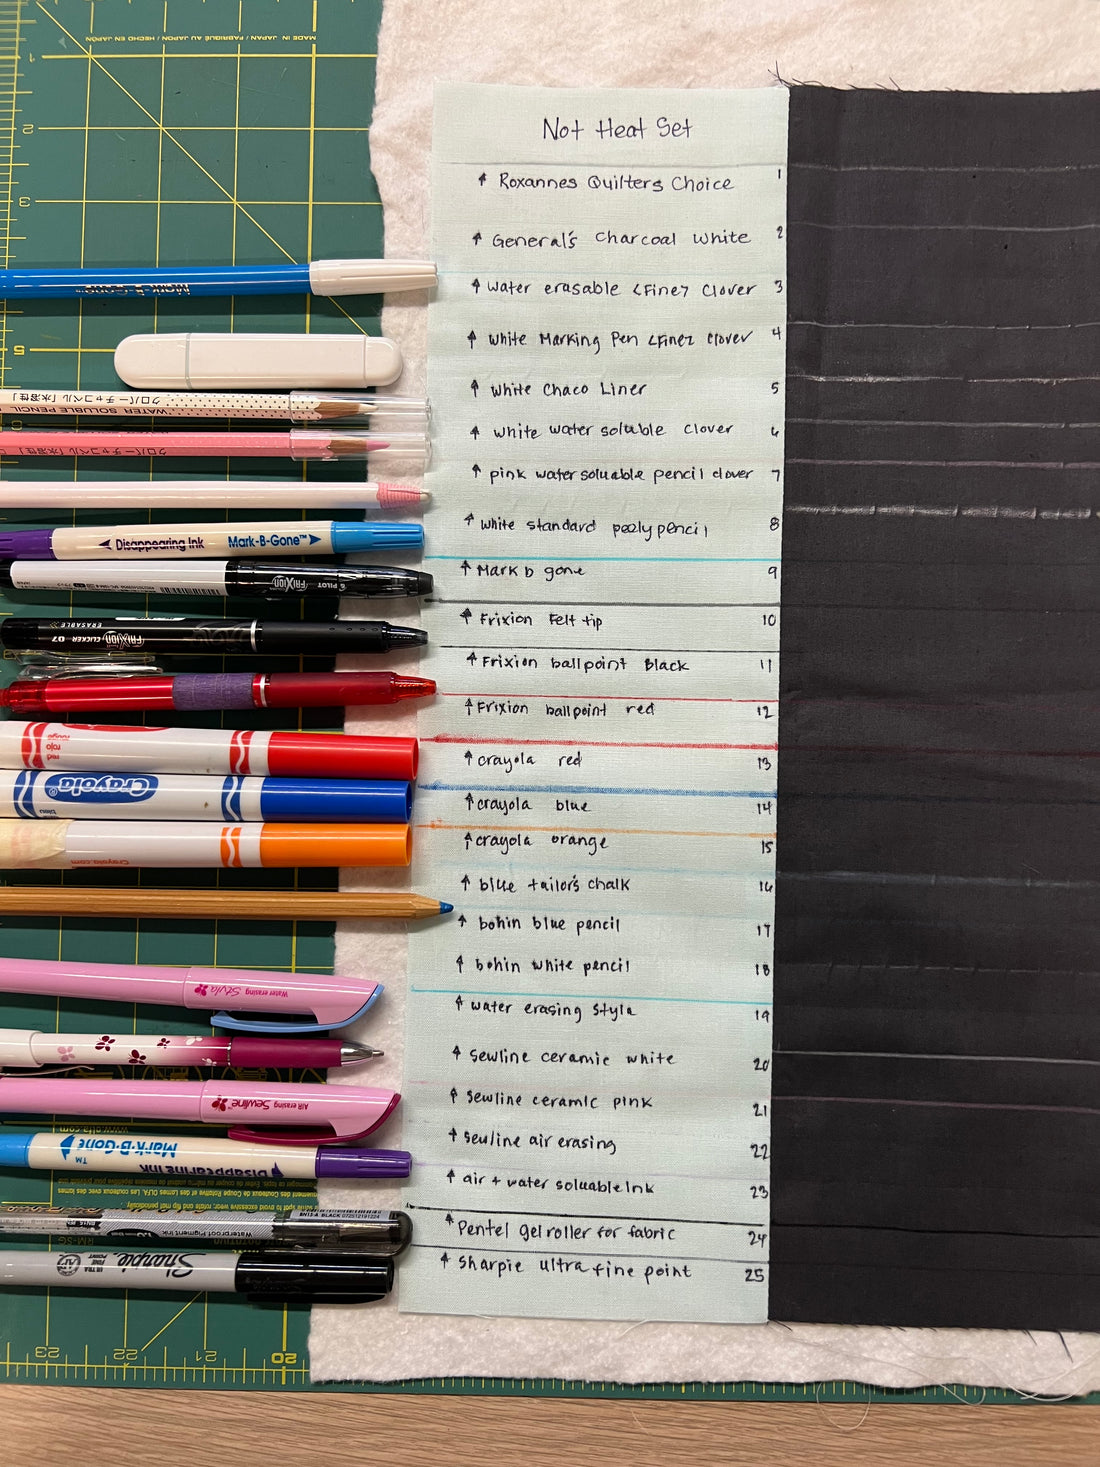 MADE IN JAPAN / FABRIQUÉ AU JAPON / HECHO EN JAPÓN
1
2
3
5
Not Heat Set
↑ Roxannes Quilters Choice 1
↑ General's Charcoal White 2
↑ water erasable <Fine> Clover 3
↑ White Marking Pen <Fine> Clover 4
↑ White Chaco Liner 5
↑ White water soluble clover 6
↑ pink water soluable pencil clover 7
↑ White standard peelypencil 8
↑ Mark b gone 9
↑ Frixion Felt tip 10
↑ Frixion ballpoint Black 11
↑ Frixion ballpoint red 12
↑ crayola red 13
↑ crayola blue 14
↑ crayola orange 15
↑ blue tailor's chalk 16
↑ bohin blue pencil 17
↑ bohin white pencil 18
↑ water erasing Styla 19
↑ Sewline ceramic white 20
↑ Sewline ceramic pink 21
↑ Sewline air erasing 22
↑ air + water soluable Ink 23
↑ Pentel gel roller for fabric 24
↑ Sharpie ultra fine point 25
Mark-B-Gone™
クロバーチャコペル「水溶性」
WATER SOLUBLE PENCIL
クロバーチャコペル「水溶性」
Disappearing Ink Mark-B-Gone™
FRIXION PILOT
ERASABLE
FRIXION CLICKER 07
red
rojo
rouge
Crayola®
bleu
Crayola.com
Water erasing Styla
AIR erasing Sewline™
www.olfa.com
Mark-B-Gone™ Disappearing Ink
BN15-A BLACK 072512191224
Waterproof Pigment Ink
RM-SG
Sharpie ULTRA FINE POINT
AP
23 22 21 20